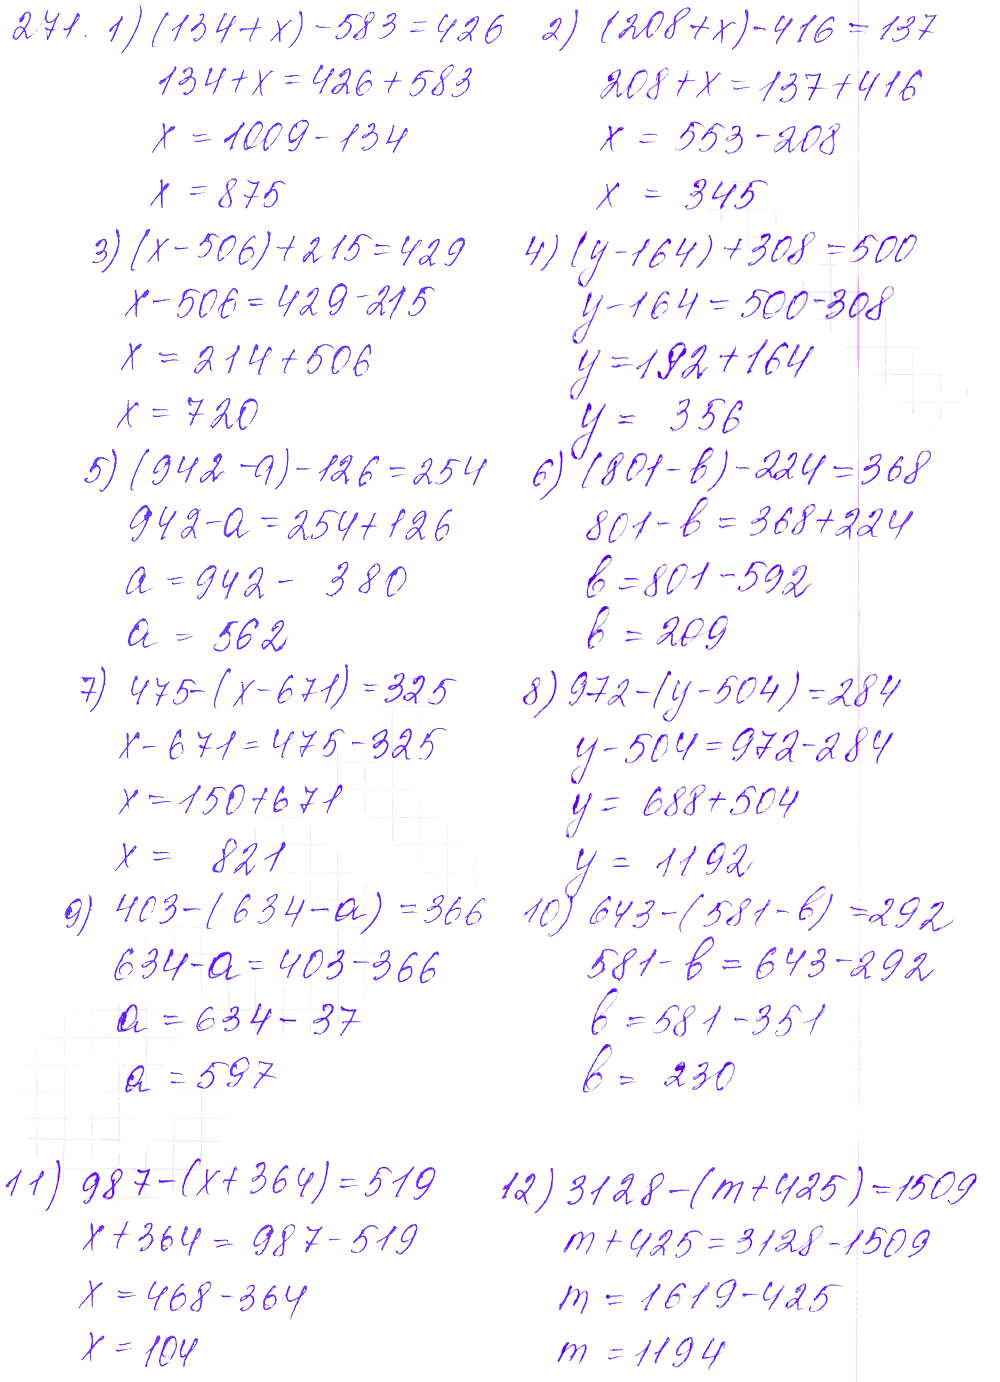 271. 1) (134+x)-583=426
134+x=426+583
x=1009-134
x=875
2) (208+x)-416=137
208+x=137+416
x=553-208
x=345
3) (x-506)+215=429
x-506=429-215
x=214+506
x=720
4) (y-164)+308=500
y-164=500-308
y=192+164
y=356
5) (942-a)-126=254
942-a=254+126
a=942-380
a=562
6) (801-b)-224=368
801-b=368+224
b=801-592
b=209
7) 475-(x-671)=325
x-671=475-325
x=150+671
x=821
8) 972-(y-504)=284
y-504=972-284
y=688+504
y=1192
9) 403-(634-a)=366
634-a=403-366
a=634-37
a=597
10) 643-(581-b)=292
581-b=643-292
b=581-351
b=230
11) 987-(x+364)=519
x+364=987-519
x=468-364
x=104
12) 3128-(m+425)=1509
m+425=3128-1509
m=1619-425
m=1194